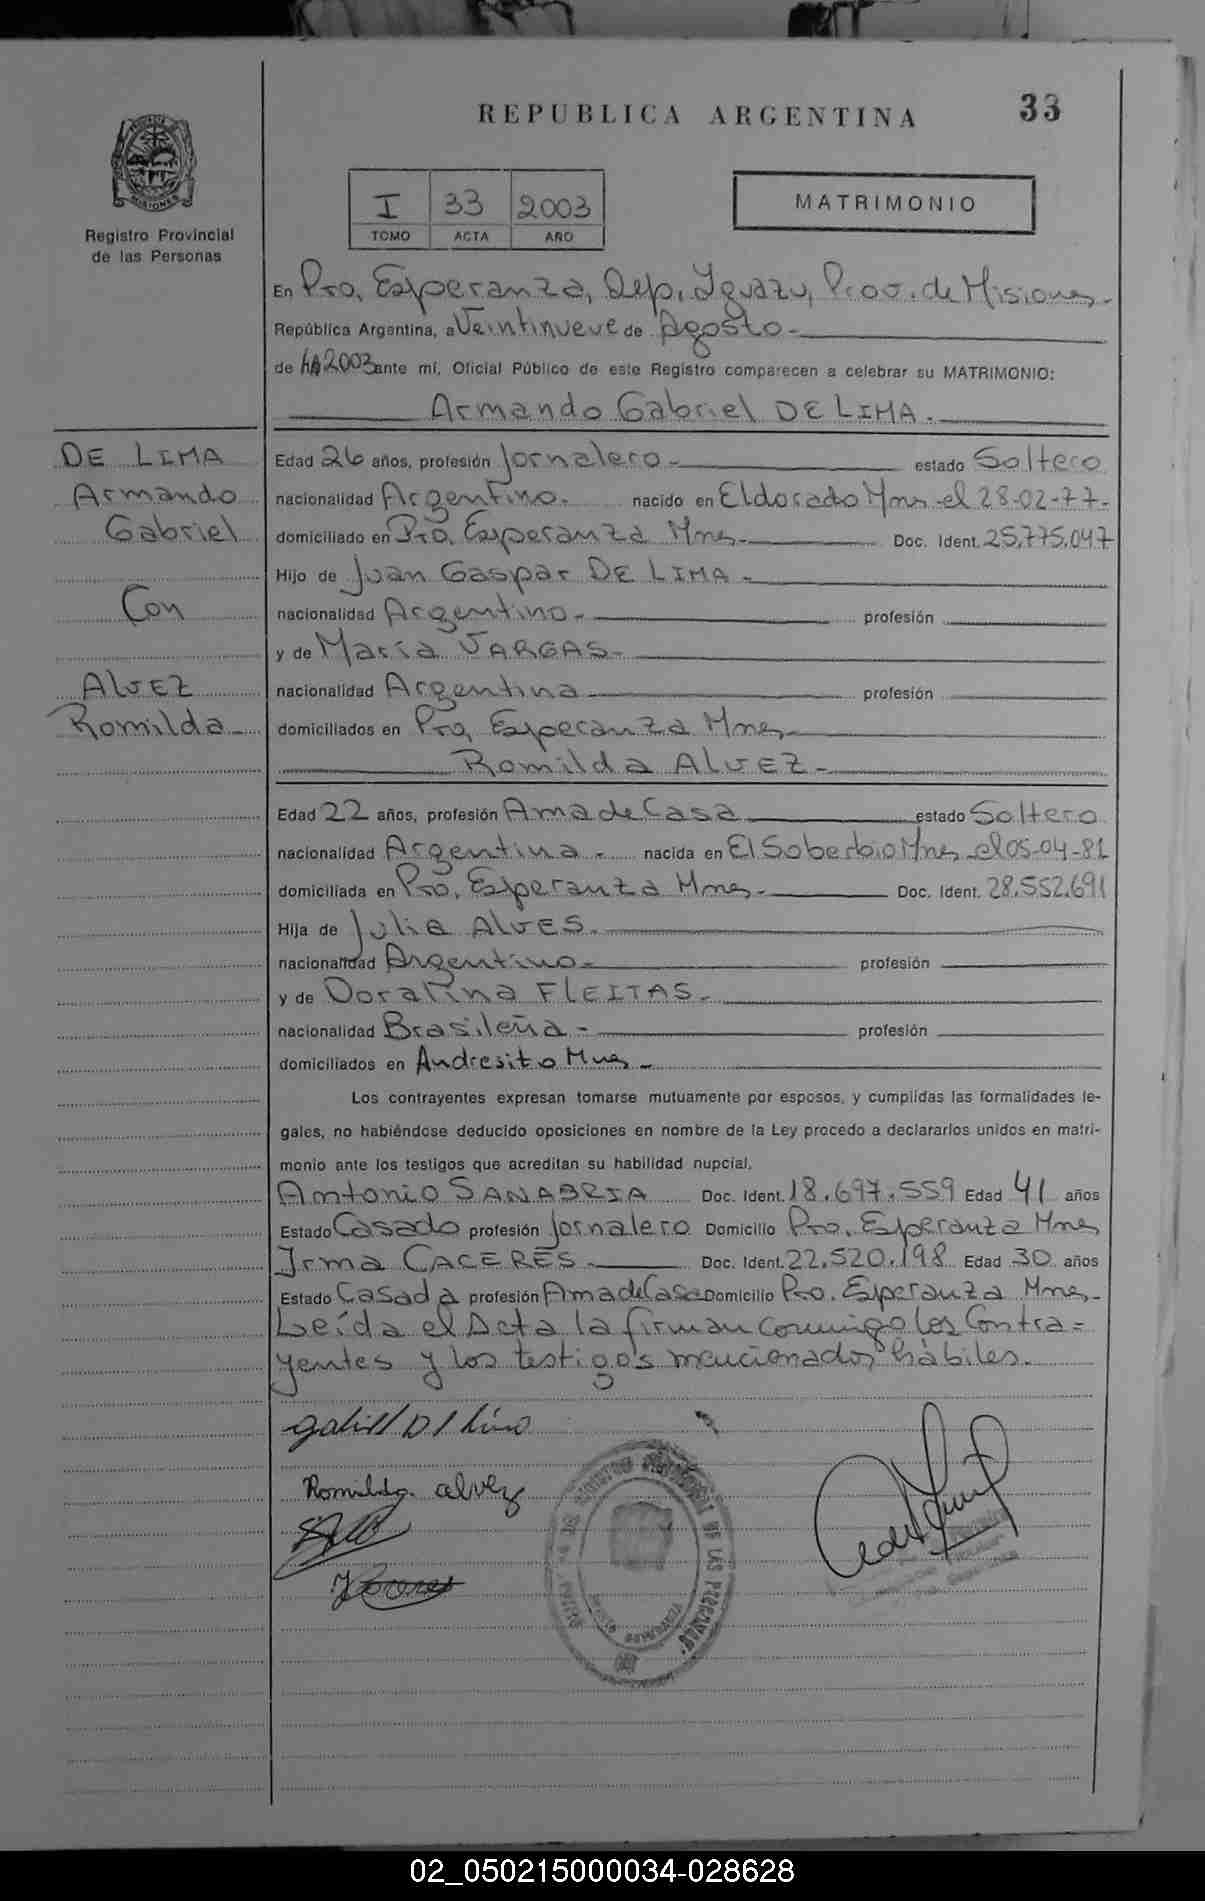 REPUBLICA ARGENTINA 33
PROVINCIA DE MISIONES
Registro Provincial
de las Personas
I 33 2003
TOMO ACTA AÑO
MATRIMONIO
En Pto. Esperanza, Dep. Iguazu, Prov. de Misiones.-
República Argentina, a Veintinueve de Agosto.-
de 2003 ante mí, Oficial Público de este Registro comparecen a celebrar su MATRIMONIO:
Armando Gabriel DE LIMA.
DE LIMA
Armando
Gabriel
Con
ALVEZ
Romilda.-
Edad 26 años, profesión Jornalero.- estado Soltero
nacionalidad Argentino. nacido en Eldorado Mnes. el 28-02-77.-
domiciliado en Pto. Esperanza Mnes.- Doc. Ident. 25.775.047
Hijo de Juan Gaspar DE LIMA.-
nacionalidad Argentino.- profesión
y de María VARGAS.-
nacionalidad Argentina profesión
domiciliados en Pto. Esperanza Mnes.-
Romilda ALVEZ.-
Edad 22 años, profesión Ama de Casa estado Soltero
nacionalidad Argentina.- nacida en El Soberbio Mnes. el 05-04-81
domiciliada en Pto. Esperanza Mnes.- Doc. Ident. 28.552.691
Hija de Julia ALVES.
nacionalidad Argentino.- profesión
y de Doralina FLEITAS.-
nacionalidad Brasileña.- profesión
domiciliados en Andresito Mnes.-
Los contrayentes expresan tomarse mutuamente por esposos, y cumplidas las formalidades le-
gales, no habiéndose deducido oposiciones en nombre de la Ley procedo a declararlos unidos en matri-
monio ante los testigos que acreditan su habilidad nupcial,
Antonio SANABRIA Doc. Ident. 18.697.559 Edad 41 años
Estado Casado profesión Jornalero Domicilio Pto. Esperanza Mnes
Irma CACERES.- Doc. Ident. 22.520.198 Edad 30 años
Estado Casada profesión Ama de Casa Domicilio Pto. Esperanza Mnes.-
Leída el Acta la firman conmigo los Contra=
yentes y los testigos mencionados hábiles.
Romilda alvez
02_050215000034-028628